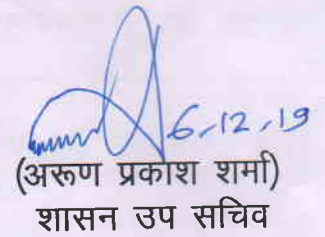 6-12-19
(अरूण प्रकाश शर्मा)
शासन उप सचिव